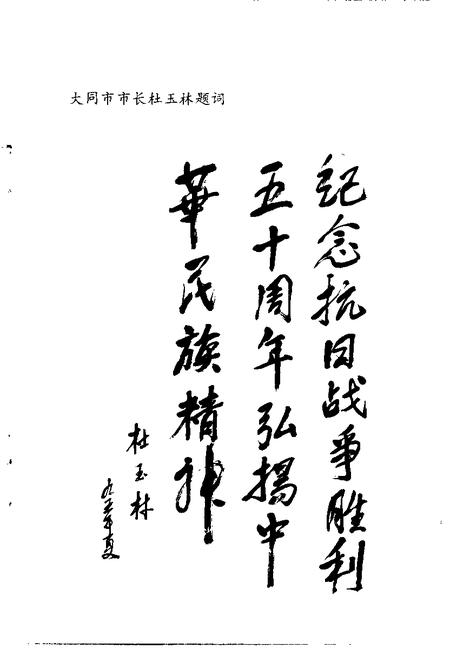 大同市市长杜玉林题词
纪念抗日战争胜利
五十周年弘揚中
華民族精神
杜玉林
九五年夏